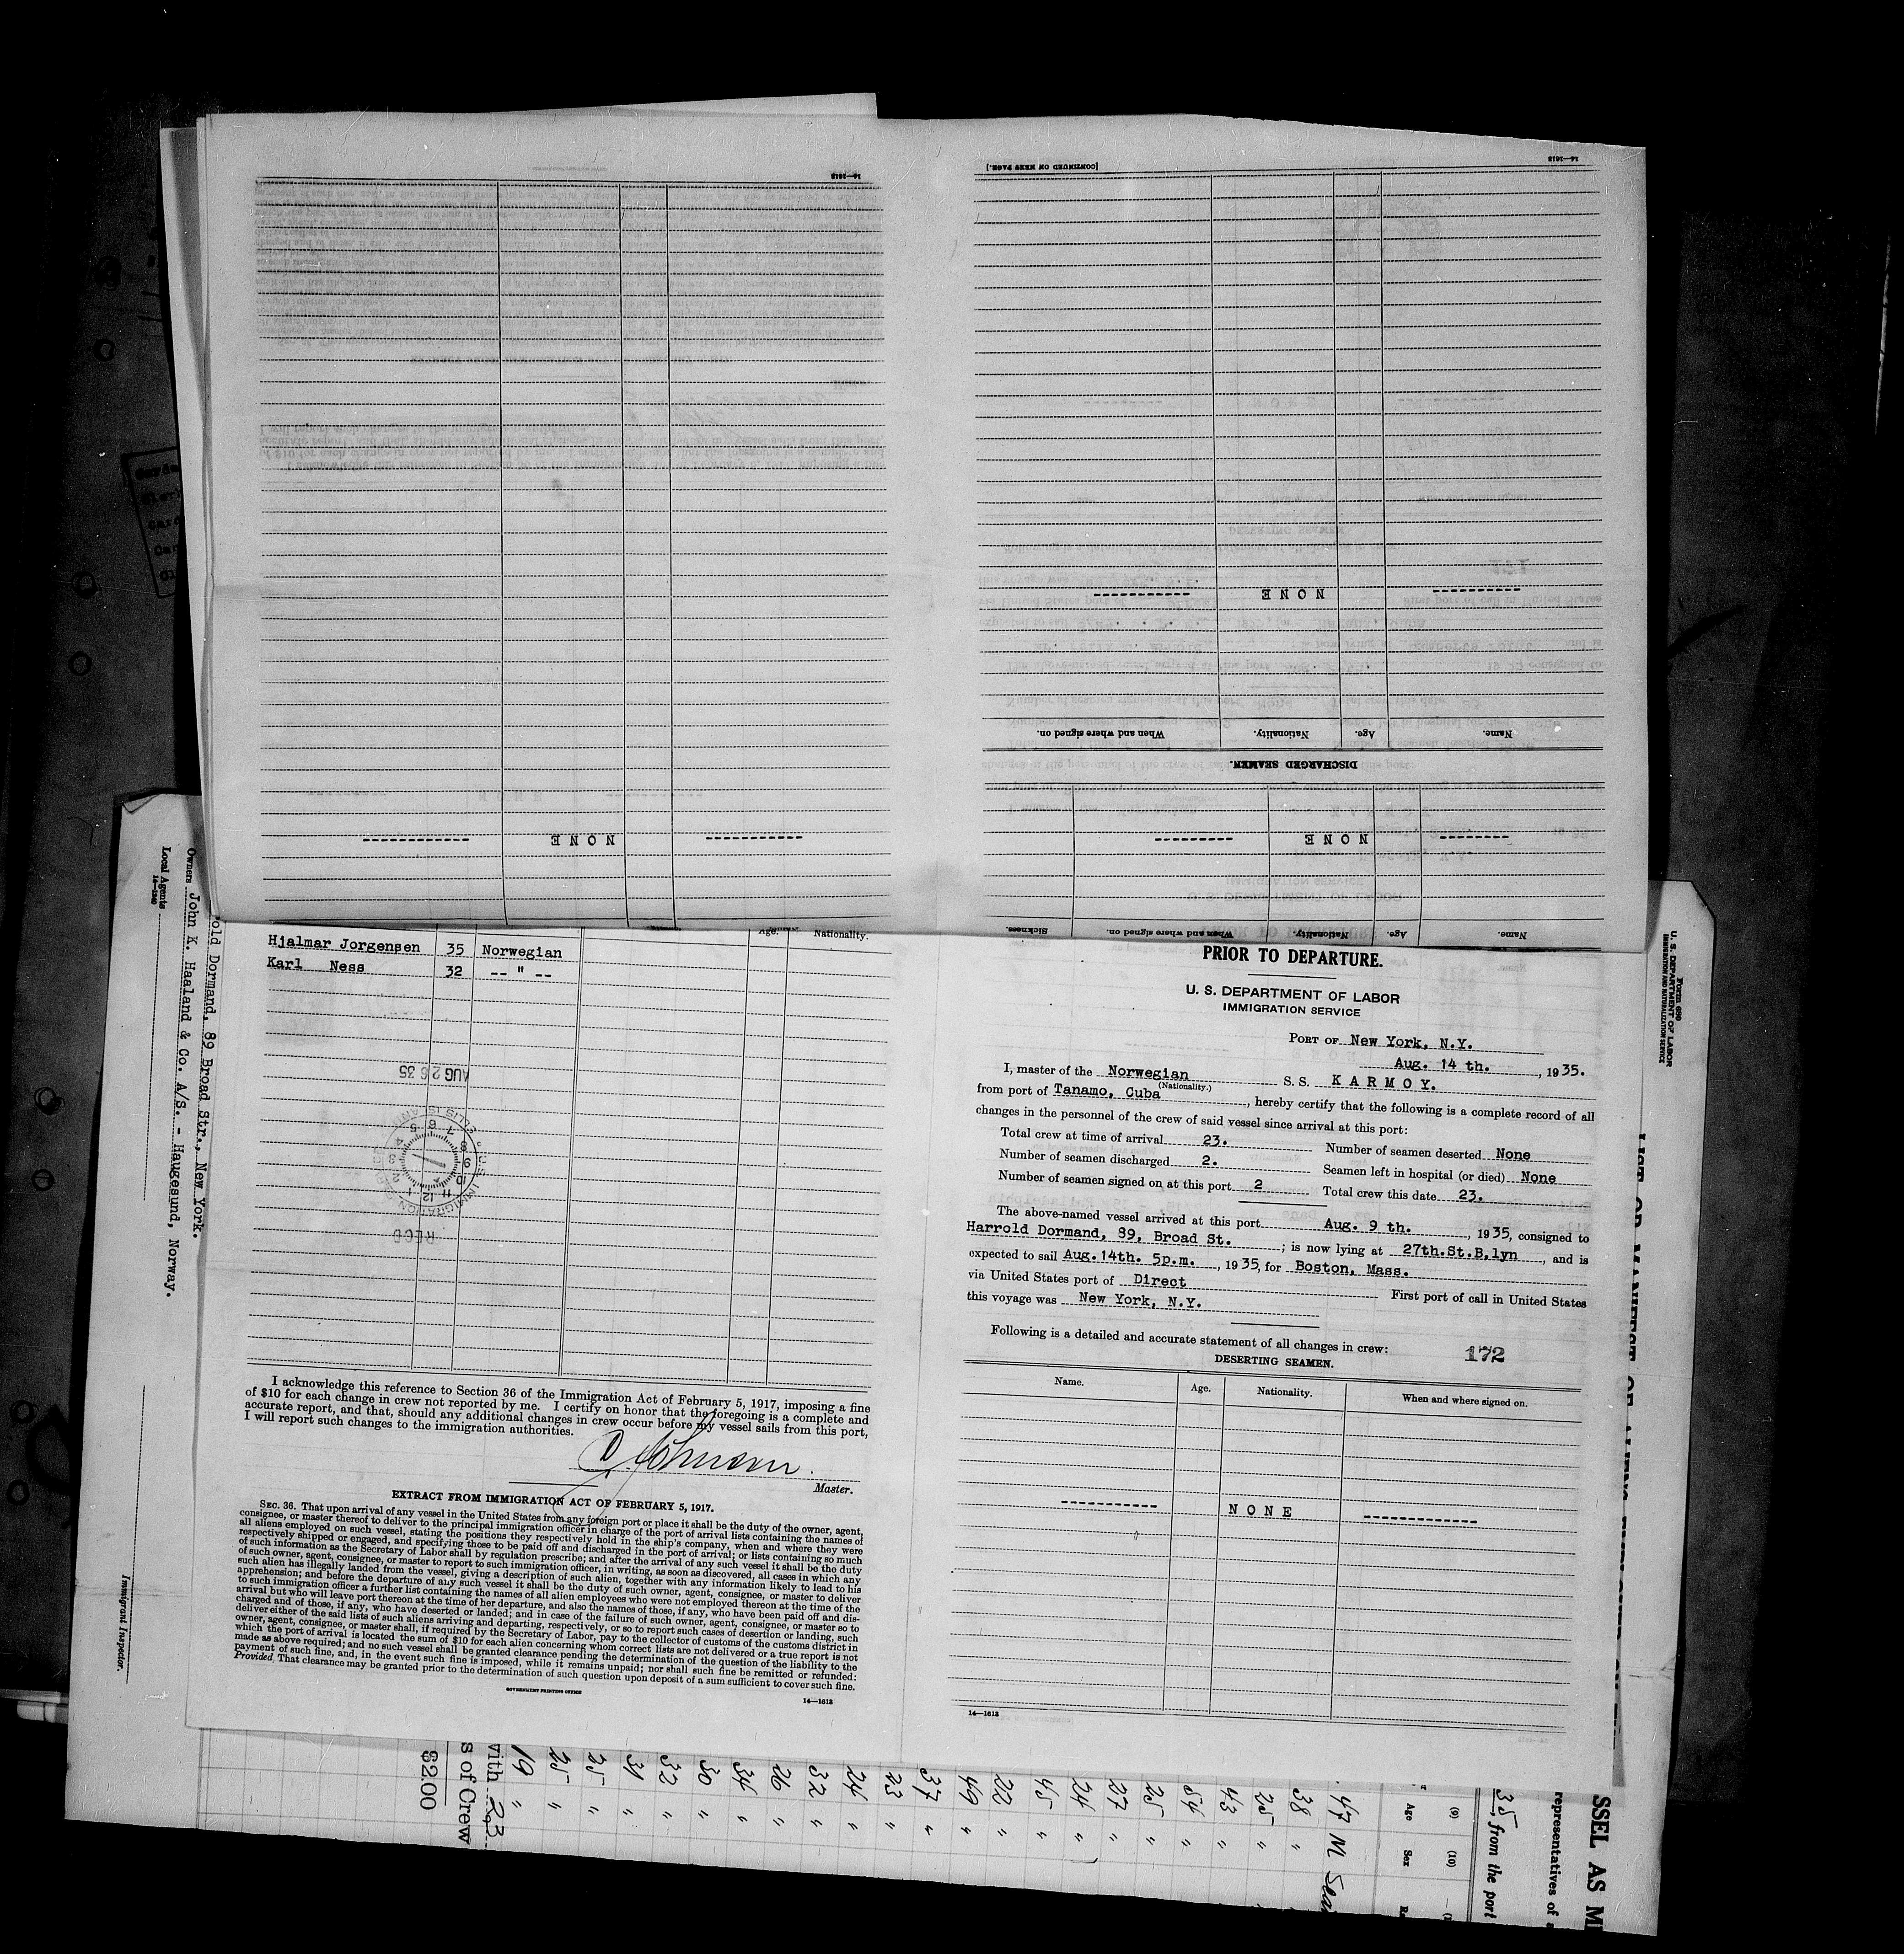 14—1613
[CONTINUED ON NEXT PAGE.]
14—1613
---------- NONE ----------
Name. Age. Nationality. When and where signed on.
DISCHARGED SEAMEN.
---------- NONE ----------
---------- NONE ----------
Name. Age. Nationality. When and where signed on. Sickness.
Age. Nationality.
Hjalmar Jorgensen 35 Norwegian
Karl Ness 32 -- " --
AUG 26 35
U. S. IMMIGRATION SERVICE
ELLIS ISLAND
1 2 3 4 5 6 7 8 9 10 11 12
RECD
I acknowledge this reference to Section 36 of the Immigration Act of February 5, 1917, imposing a fine
of $10 for each change in crew not reported by me. I certify on honor that the foregoing is a complete and
accurate report, and that, should any additional changes in crew occur before my vessel sails from this port,
I will report such changes to the immigration authorities.
O. Johnson.
Master.
EXTRACT FROM IMMIGRATION ACT OF FEBRUARY 5, 1917.
SEC. 36. That upon arrival of any vessel in the United States from any foreign port or place it shall be the duty of the owner, agent,
consignee, or master thereof to deliver to the principal immigration officer in charge of the port of arrival lists containing the names of
all aliens employed on such vessel, stating the positions they respectively hold in the ship's company, when and where they were
respectively shipped or engaged, and specifying those to be paid off and discharged in the port of arrival; or lists containing so much
of such information as the Secretary of Labor shall by regulation prescribe; and after the arrival of any such vessel it shall be the duty
of such owner, agent, consignee, or master to report to such immigration officer, in writing, as soon as discovered, all cases in which any
such alien has illegally landed from the vessel, giving a description of such alien, together with any information likely to lead to his
apprehension; and before the departure of any such vessel it shall be the duty of such owner, agent, consignee, or master to deliver
to such immigration officer a further list containing the names of all alien employees who were not employed thereon at the time of the
arrival but who will leave port thereon at the time of her departure, and also the names of those, if any, who have been paid off and dis-
charged and of those, if any, who have deserted or landed; and in case of the failure of such owner, agent, consignee, or master so to
deliver either of the said lists of such aliens arriving and departing, respectively, or so to report such cases of desertion or landing, such
owner, agent, consignee, or master shall, if required by the Secretary of Labor, pay to the collector of customs of the customs district in
which the port of arrival is located the sum of $10 for each alien concerning whom correct lists are not delivered or a true report is not
made as above required; and no such vessel shall be granted clearance pending the determination of the question of the liability to the
payment of such fine, and, in the event such fine is imposed, while it remains unpaid; nor shall such fine be remitted or refunded:
Provided, That clearance may be granted prior to the determination of such question upon deposit of a sum sufficient to cover such fine.
GOVERNMENT PRINTING OFFICE
14—1613
PRIOR TO DEPARTURE.
U. S. DEPARTMENT OF LABOR
IMMIGRATION SERVICE
PORT OF New York, N.Y.
Aug. 14 th. , 1935.
I, master of the Norwegian S. S. K A R M O Y.
(Nationality.)
from port of Tanamo, Cuba , hereby certify that the following is a complete record of all
changes in the personnel of the crew of said vessel since arrival at this port:
Total crew at time of arrival 23. Number of seamen deserted None
Number of seamen discharged 2. Seamen left in hospital (or died) None
Number of seamen signed on at this port 2 Total crew this date 23.
The above-named vessel arrived at this port Aug. 9 th. , 1935, consigned to
Harrold Dormand, 89, Broad St. ; is now lying at 27th.St.B,lyn , and is
expected to sail Aug.14th. 5p.m. , 1935, for Boston, Mass.
via United States port of Direct First port of call in United States
this voyage was New York, N.Y.
Following is a detailed and accurate statement of all changes in crew:
172
DESERTING SEAMEN.
Name. Age. Nationality. When and where signed on.
---------- NONE ----------
14—1613
old Dormand, 89 Broad Str., New York.
Owners John K. Haaland & Co. A/S. - Haugesund, Norway.
Local Agents
14—1240
Immigrant Inspector.
Form 680
U. S. DEPARTMENT OF LABOR
IMMIGRATION AND NATURALIZATION SERVICE
LIST OR MANIFEST OF ALIENS
SSEL AS M
representatives of
35, from the port
(9) (10)
Age Sex
47 M Sea
38 "
25 "
43 "
54 "
25 "
27 "
24 "
45 "
22 "
49 "
37 "
23 "
24 "
32 "
26 "
34 "
30 "
32 "
31 "
25 "
25 "
19 "
with 23
s of Crew
$2.00